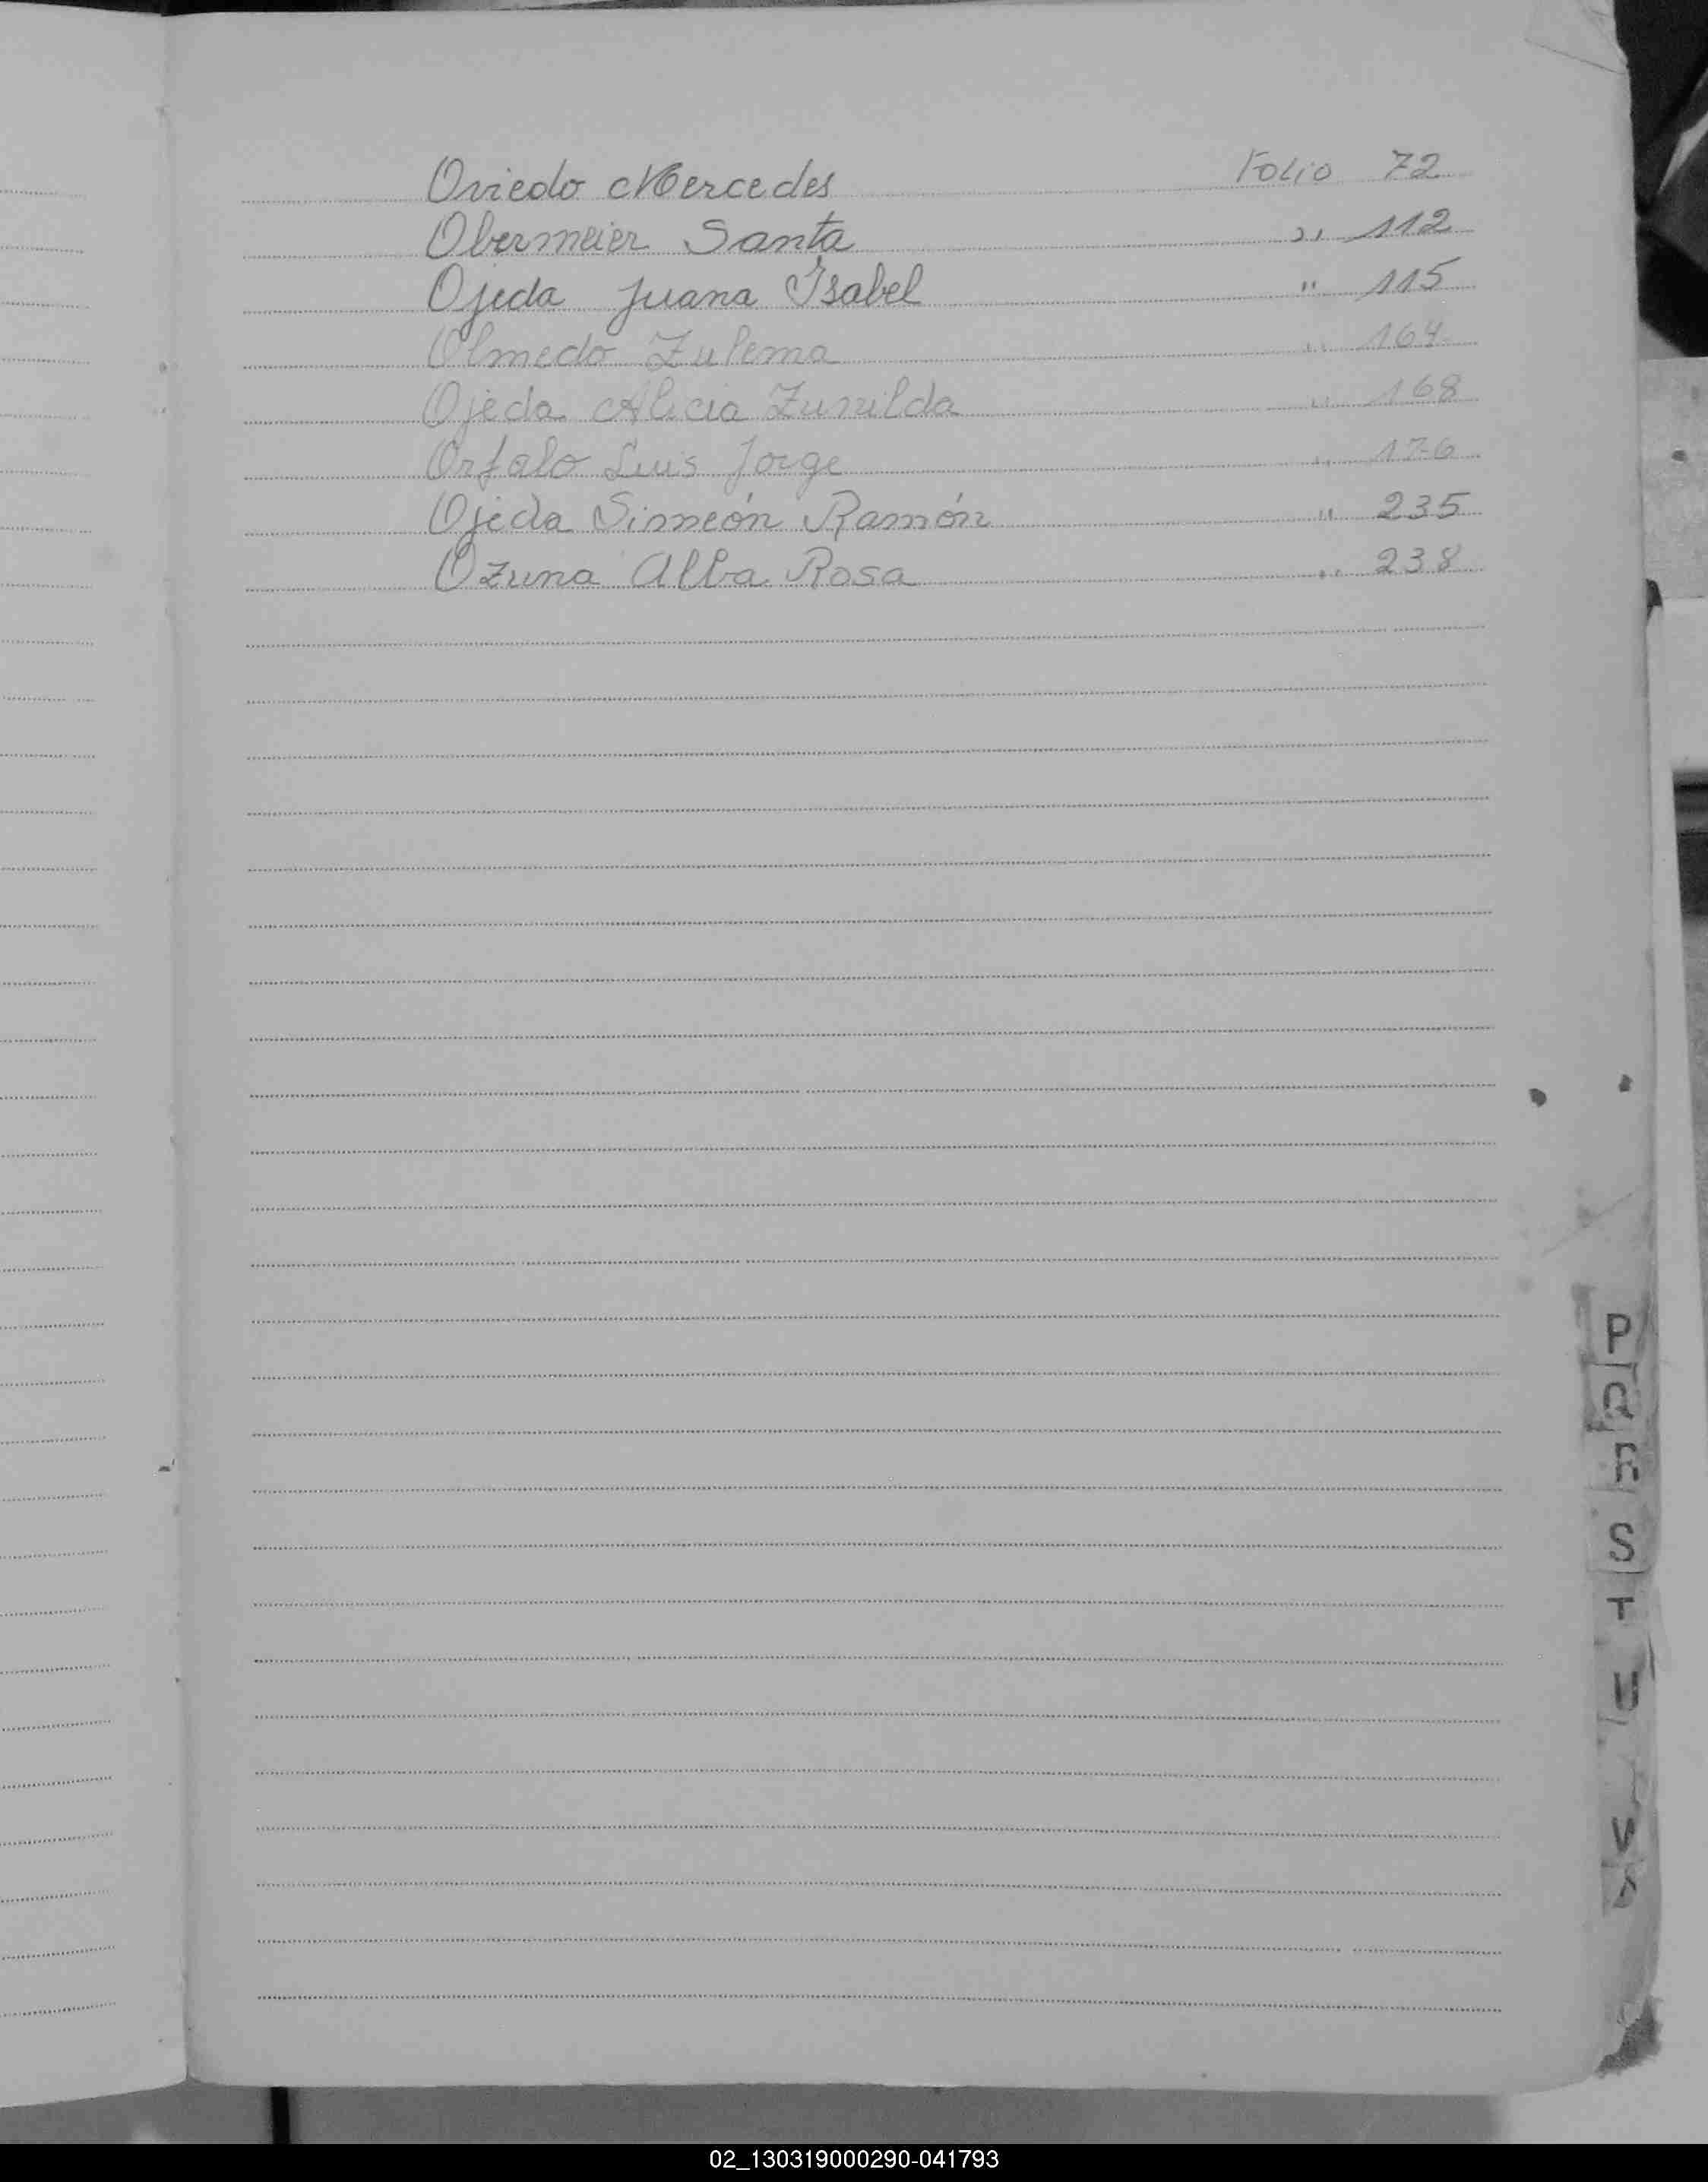 Oviedo Mercedes Folio 72
Obermeier Santa " 112
Ojeda Juana Ysabel " 115
Olmedo Zulema " 164
Ojeda Alicia Zunilda " 168
Orfalo Luis Jorge " 176
Ojeda Simeón Ramón " 235
Ozuna Alba Rosa " 238
P
Q
R
S
T
U
V
02_130319000290-041793